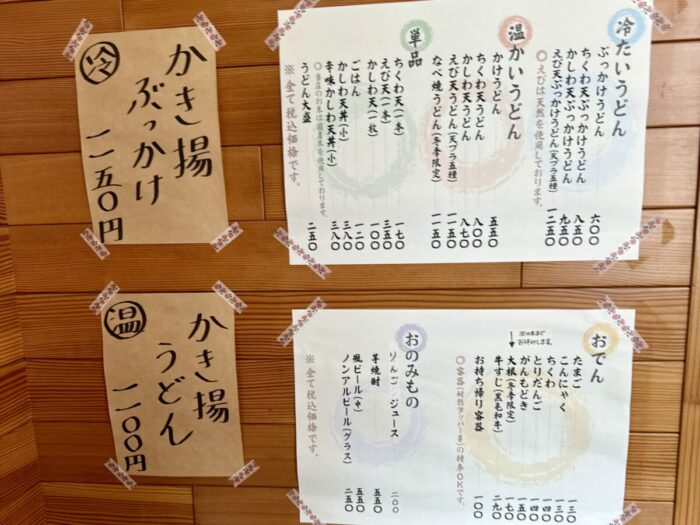 冷たいうどん
ぶっかけうどん 六〇〇
ちくわ天ぶっかけうどん 八五〇
かしわ天ぶっかけうどん 九五〇
えび天ぶっかけうどん(天プラ五種) 一二五〇
◎えびは天然を使用しております。
温かいうどん
かけうどん 五五〇
ちくわ天うどん 八〇〇
かしわ天うどん 八七〇
えび天うどん(天プラ五種) 一一五〇
なべ焼うどん(冬季限定) 一一五〇
単品
ちくわ天(一本) 一七〇
えび天(一本) 三五〇
かしわ天(一枚) 一〇〇
ごはん 一二〇
かしわ天丼(小) 三八〇
辛味かしわ天丼(小) 三八〇
うどん大盛 二五〇
◎当店のお米は国産米を使用しております。
※全て税込価格です。
かき揚
冷 ぶっかけ
一一五〇円
おでん
たまご 一三〇
こんにゃく 一三〇
ちくわ 一四〇
とりだんご 一四〇
がんもどき 一五〇
次の冬まで
お休みします
大根(冬季限定) 一七〇
牛すじ(黒毛和牛) 二九〇
お持ち帰り容器 一〇〇
◎容器(耐熱タッパー等)の持参OKです。
おのみもの
りんごジュース 二〇〇
芋焼酎 五五〇
瓶ビール(中) 五五〇
ノンアルビール(グラス) 二五〇
※全て税込価格です。
かき揚
温 うどん
一一〇〇円